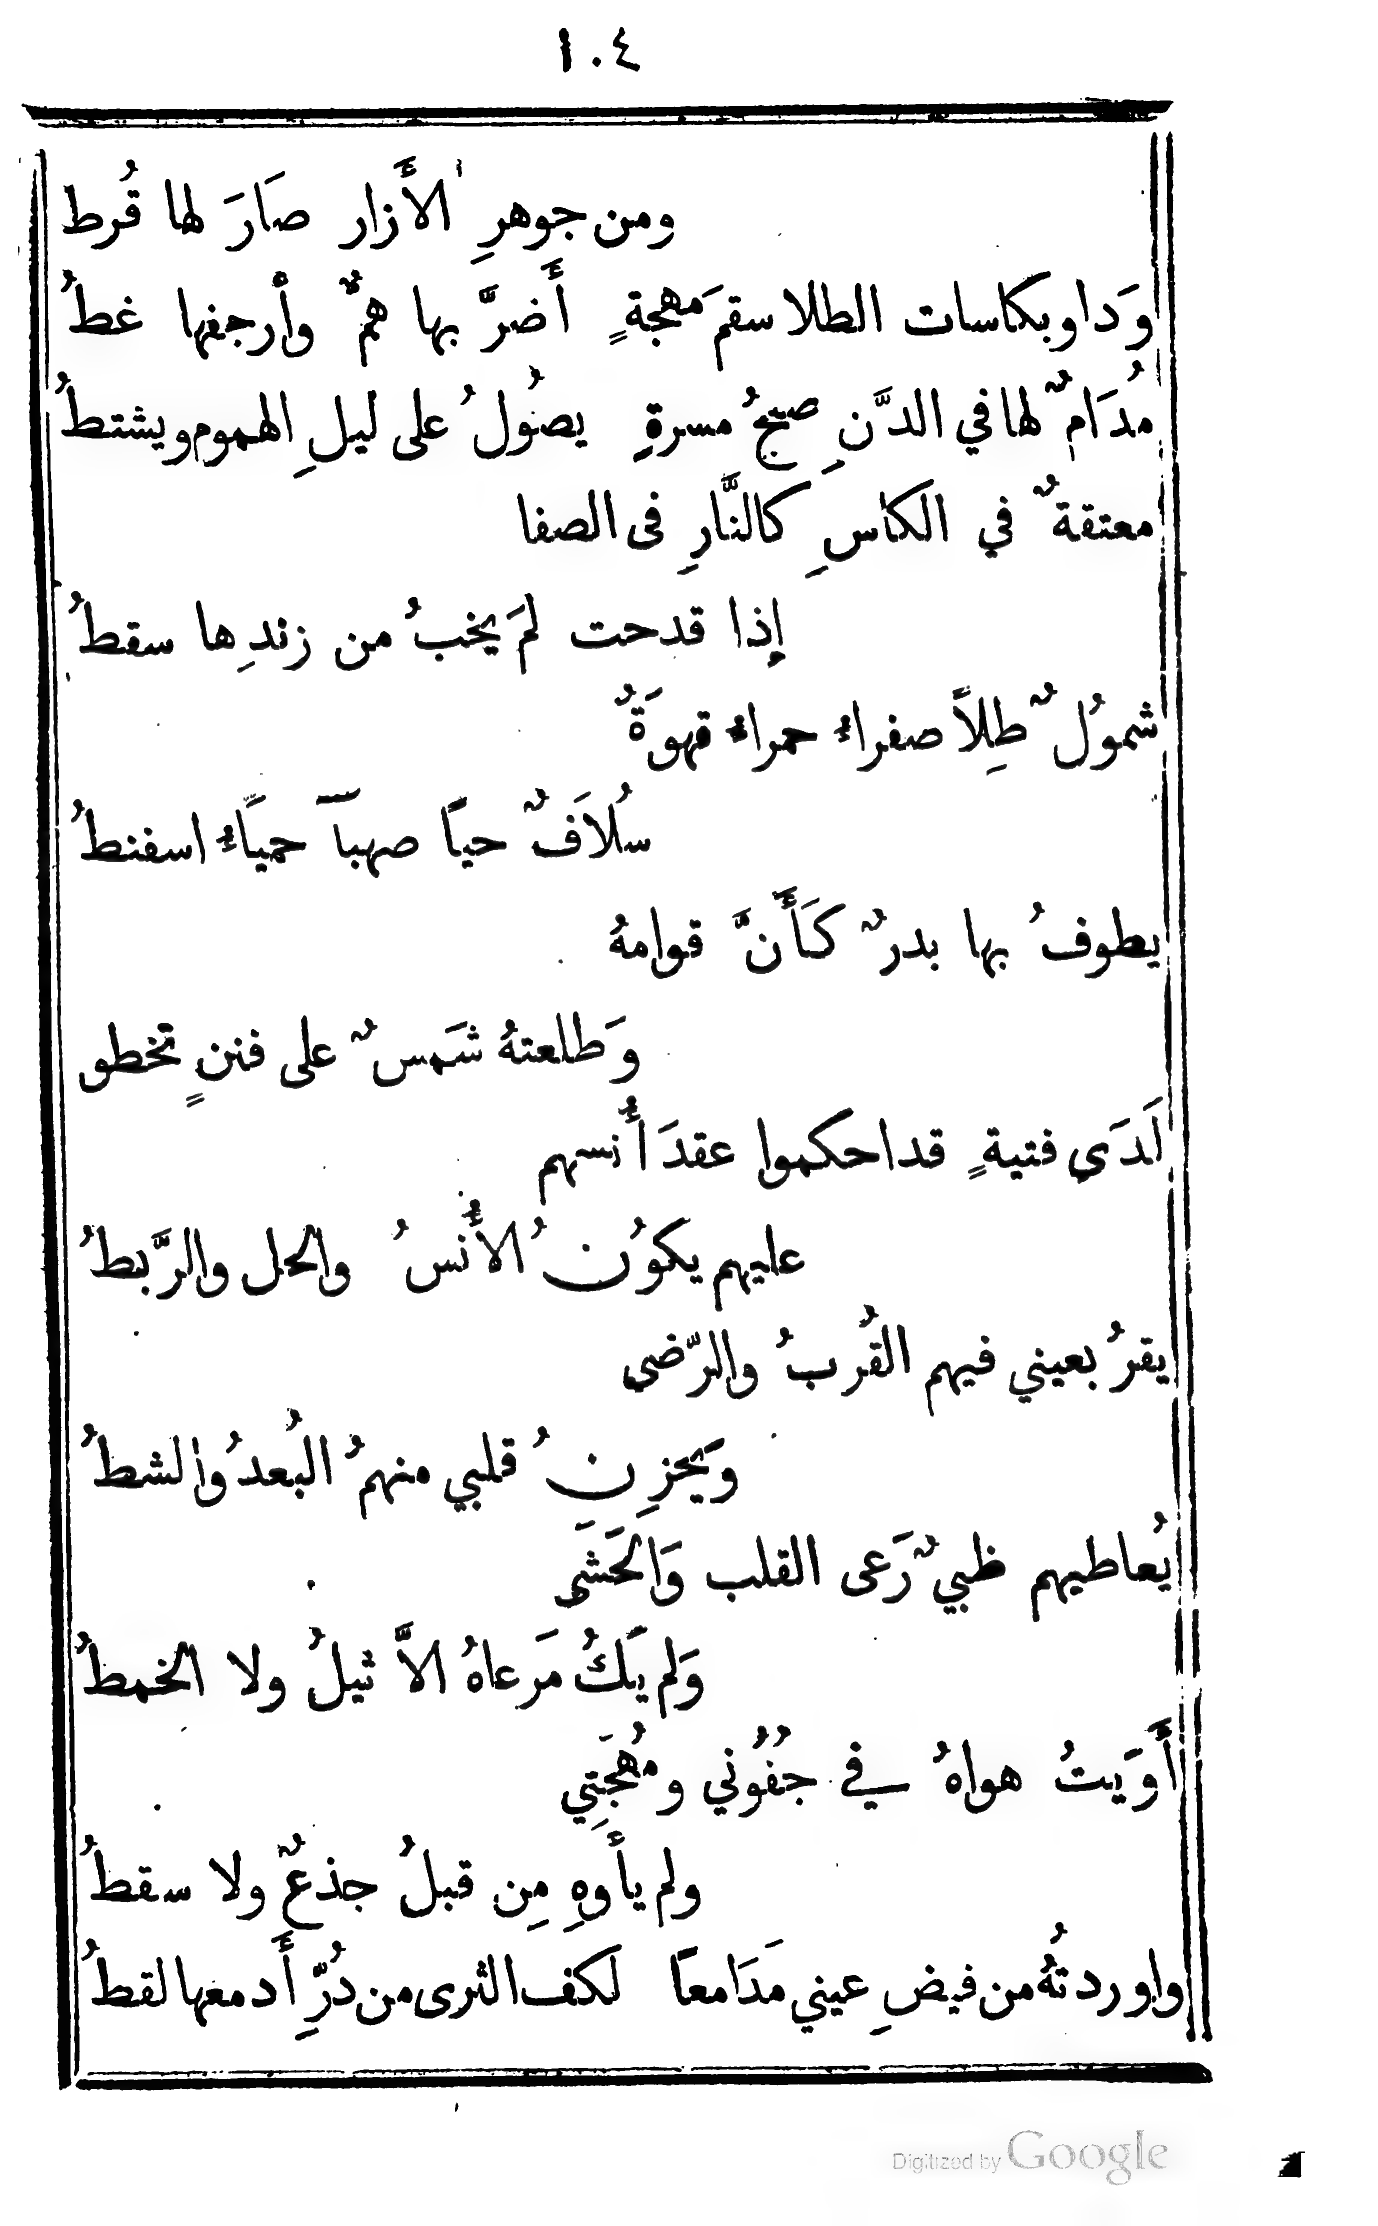 ١٠٤
ومن جوهرِ الأَزار صَارَ لها قُرط
وَداو بكاسات الطلا سقمَ مهجةٍ أَضرَّ بها همٌّ وأرجفها غطُ
مُدَامٌ لها في الدَّنِ صبحُ مسرةٍ يصُولُ على ليلِ الهموم ويشتطُ
معتقةٌ في الكاسِ كالنَّارِ فى الصفا
إذا قدحت لمَ يخبُ من زندِها سقطُ
شموُلٌ طِلاً صفراءُ حمراءُ قهوَةٌ
سُلاَفٌ حياً صهبآَ حمياًءُ اسفنطُ
يطوفُ بها بدرٌ كَأَنَّ قوامهُ
وَطلعتهُ شَمسٌ على فننٍ تخطو
لَدَي فتيةٍ قد احكموا عقدَ أُنسهم
عليهم يكوُنُ الأُنسُ والحل والرَّبطُ
يقرُ بعيني فيهم القُربُ والرّضى
وَيحزِنُ قلبي منهمُ البُعدُ والشطُ
يُعاطيهم ظبيٌ رَعى القلب وَالحَشَى
وَلم يَكُ مَرعاهُ الاَّ ثيلُ ولا الخمطُ
أَوَيتُ هواهُ في جفُوُني ومُهجَتِي
ولم يأَوهِ مِن قبلُ جذعٌ ولا سقطُ
واوردتُهُ من فيضِ عيني مَدَامعاً لكف الثرى من دُرِّ أَدمعها لقطُ
Digitized by Google